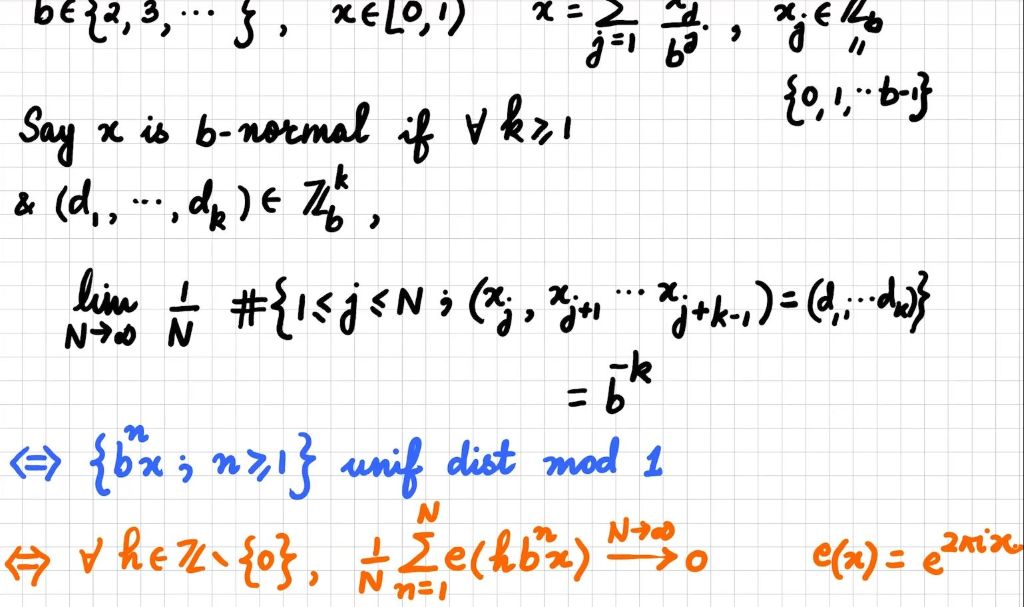 b ∈ {2, 3, ⋯ }, x ∈ [0, 1) x = ∑_{j=1} x_j / b^j, x_j ∈ ℤ_b
"
{0, 1, ⋯ b-1}
Say x is b-normal if ∀ k ⩾ 1
& (d_1, ⋯, d_k) ∈ ℤ_b^k,
lim_{N→∞} 1/N #{1 ≤ j ≤ N ; (x_j, x_{j+1} ⋯ x_{j+k-1}) = (d_1, ⋯ d_k)}
= b^{-k}
⇔ {b^n x ; n ⩾ 1} unif dist mod 1
⇔ ∀ h ∈ ℤ \ {0}, 1/N ∑_{n=1}^{N} e(h b^n x) →^{N→∞} 0 e(x) = e^{2πix}